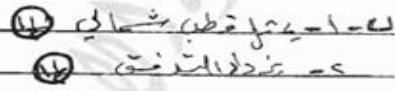 ب-١- يمثل قطب شمالي
٢- يزداد التدفق